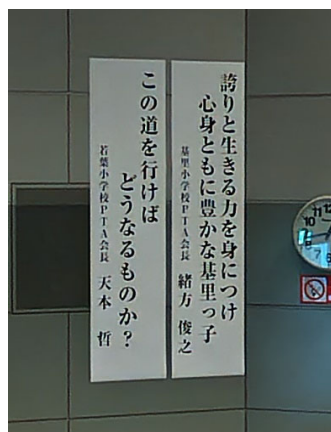 誇りと生きる力を身につけ
心身ともに豊かな基里っ子
基里小学校PTA会長 緒方 俊之
この道を行けば
どうなるものか?
若葉小学校PTA会長 天本 哲